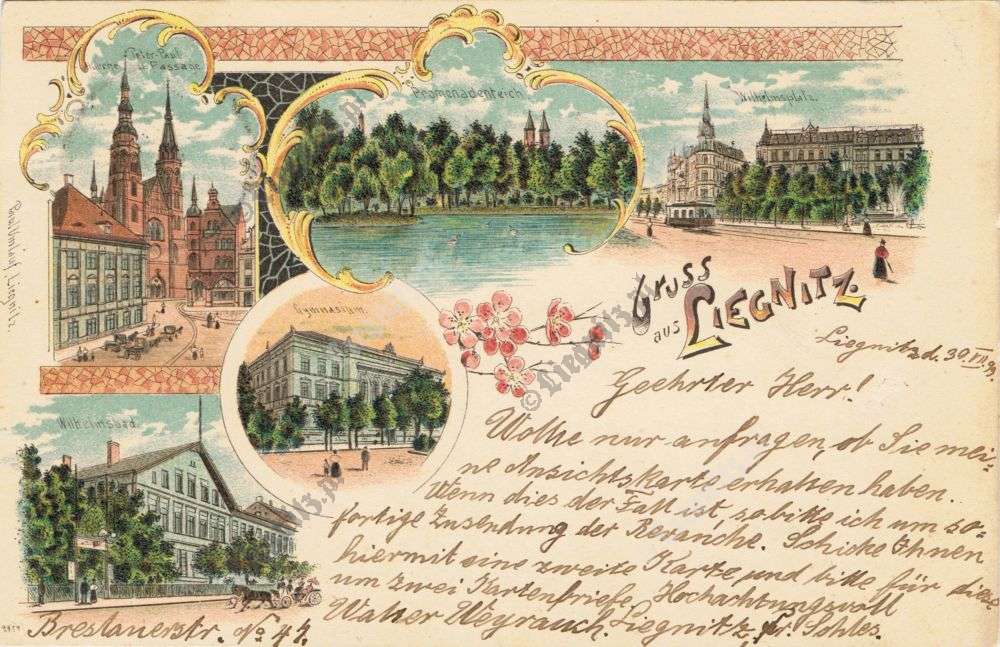 Peter-Paul
Passage.
Promenadenteich
Wilhelmsplatz.
Gymnasium.
Wilhelmsbad.
Gruss
aus LIEGNITZ.
Liegnitz d. 30. VII.
Geehrter Herr!
Wollte nur anfragen, ob Sie mei-
ne Ansichtskarte erhalten haben.
Wenn dies der Fall ist, so bitte ich um so-
fortige Zusendung der Revanche. Schicke Ihnen
hiermit eine zweite Karte und bitte für diese
um zwei Hochachtungsvoll
Walter Weyrauch. Liegnitz, pr. Schles.
Breslauerstr. No 47.
Liegnitz.
© Liegnitz.pl